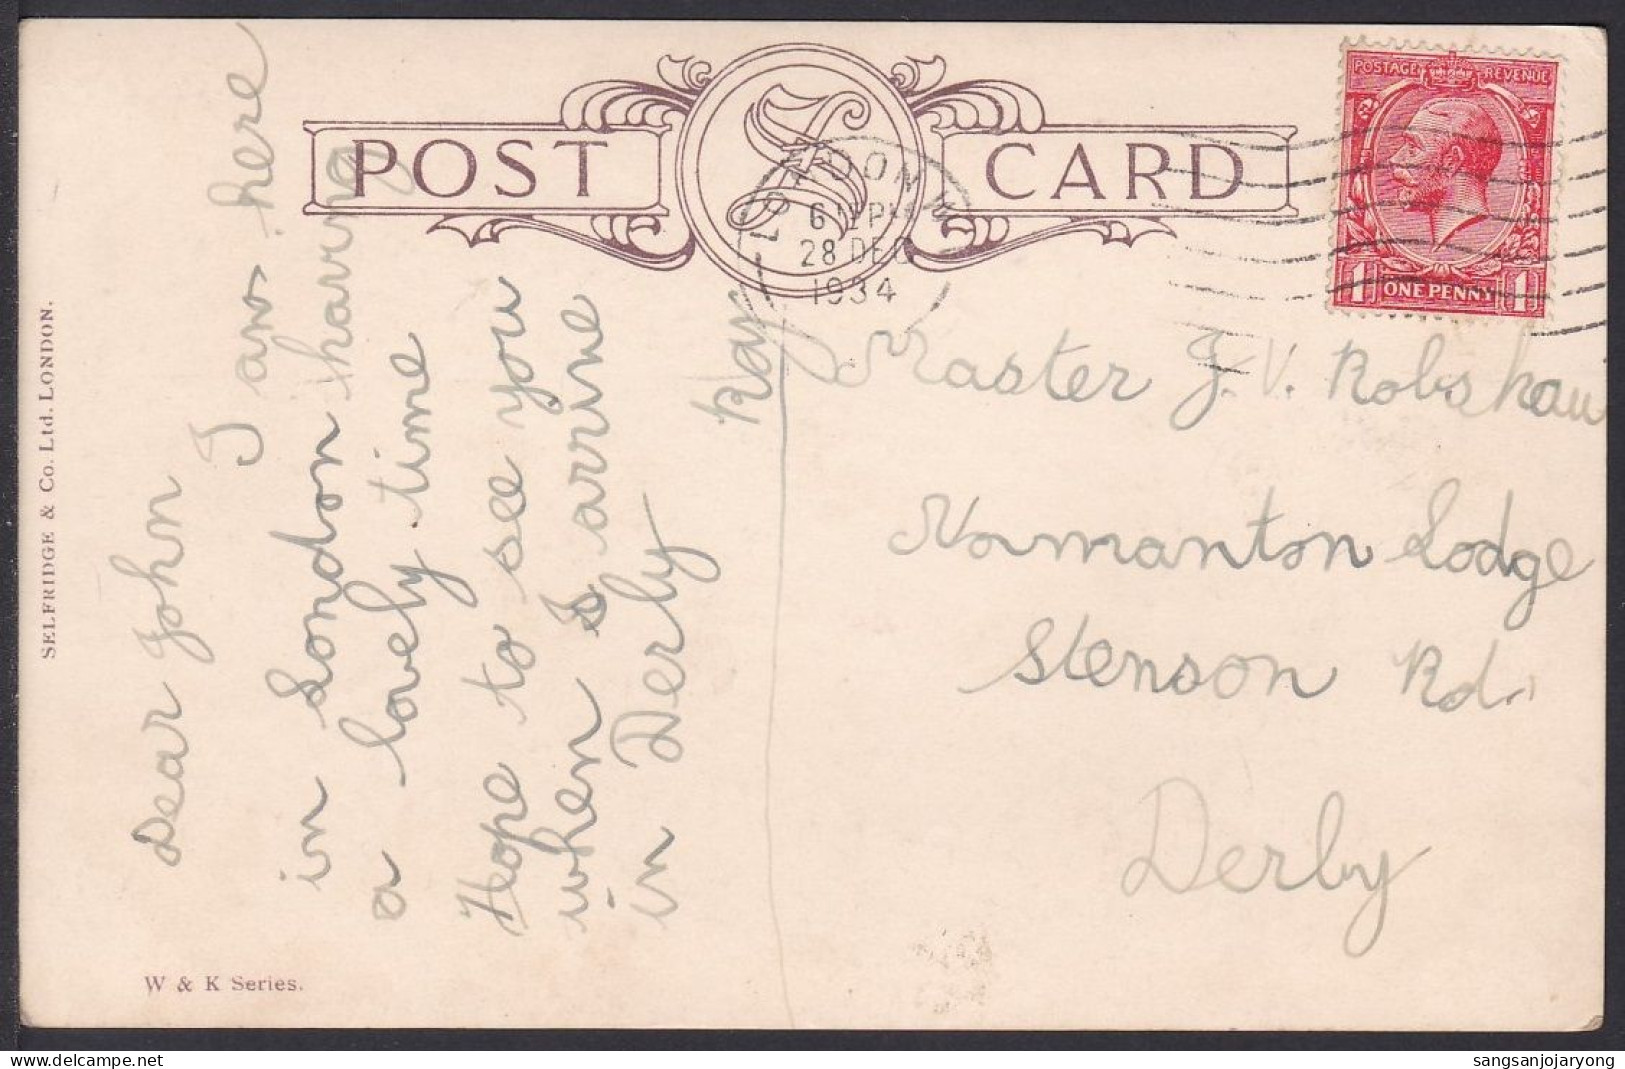 POST CARD
SELFRIDGE & Co. Ltd. LONDON.
W & K Series.
LONDON
28 DEC
1934
POSTAGE REVENUE
1 ONE PENNY 1
Dear John
I am here
in London having
a lovely time
Hope to see you
when I arrive
in Derby
Master J. V. Robshaw
Normanton Lodge
Stenson Rd.
Derby
sangsanjojaryong